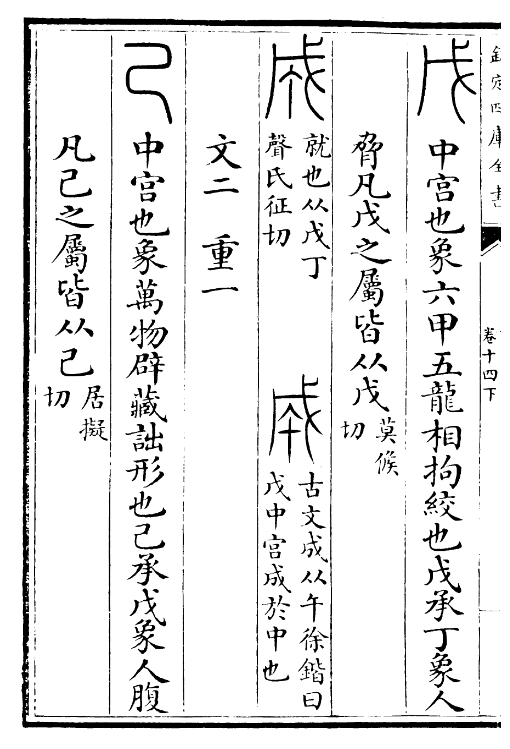 欽定四庫全書
卷十四下
戊 中宮也象六甲五龍相拘絞也戊承丁象人
脅凡戊之屬皆从戊莫候切
成 就也从戊丁聲氏征切 𢦩 古文成从午徐鍇曰戊中宮成於中也
文二 重一
己 中宮也象萬物辟藏詘形也己承戊象人腹
凡己之屬皆从己居擬切